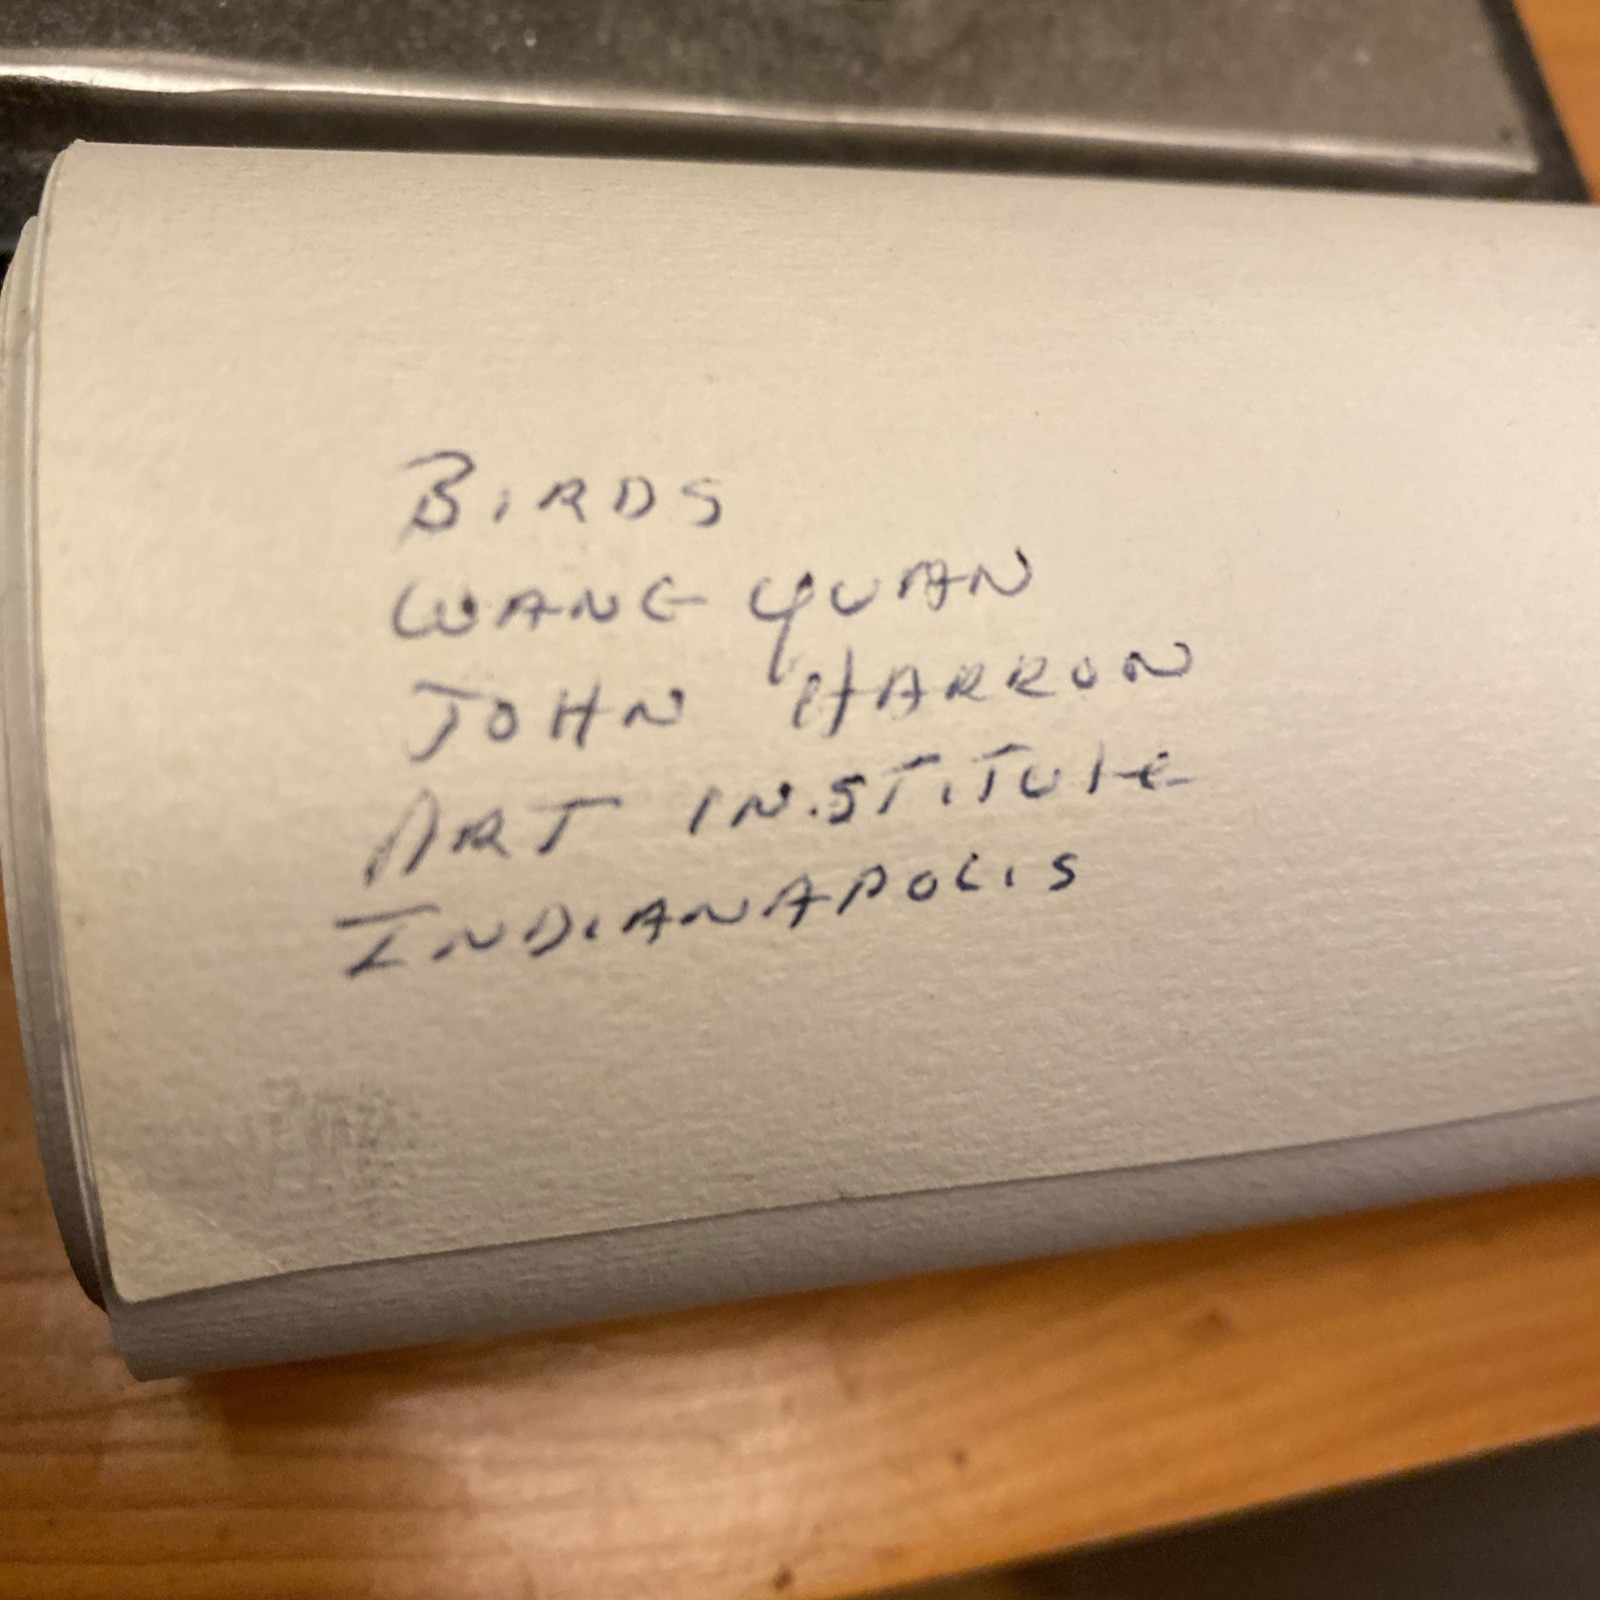 BIRDS
WANG YUAN
JOHN HARRON
ART INSTITUTE
INDIANAPOLIS